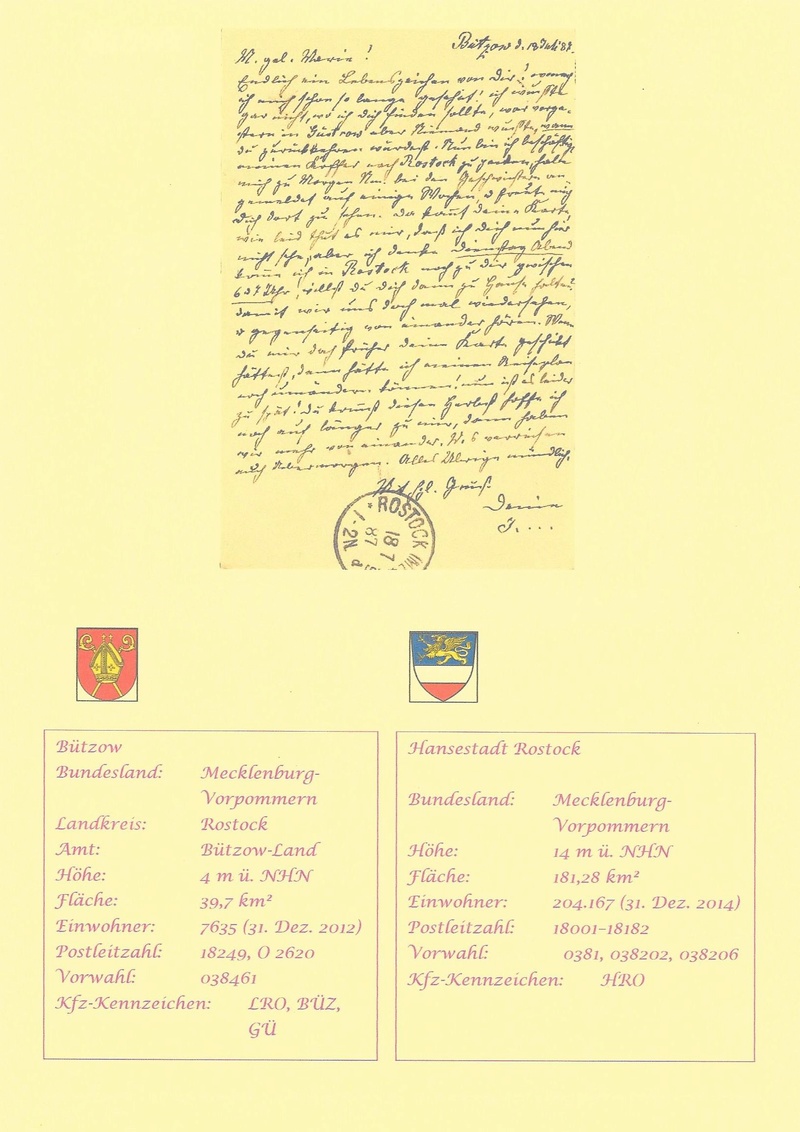 Bützow d. 18 Juli 87.
M. gel. Marie!
Endlich ein Lebenszeichen von Dir!
ich mich schon so lange gesehnt! ich wußte
gar nicht, wo ich Dich finden sollte, war vorge-
stern in Güstrow aber Niemand wußte, wann
du zurückkehren würdest. Nun bin ich beschäftigt,
meinen Koffer nach Rostock zu packen, habe
mich zu Morgen Nm. bei den Geschwistern an-
gemeldet auf einige Wochen, freute mich
Dich dort zu sehen. Da kommt deine Karte,
wie leid thut es mir, daß ich Dich nun hier
nicht sehe, aber ich denke Dienstag Abend
komm ich in Rostock noch zu dir zwischen
6 Uhr, willst du dich dann zu Hause halten?
damit wir uns doch mal wiedersehen,
gegenseitig von einander hören. Wenn
du mir doch früher deine Karte geschickt
hättest, dann hätte ich meinen Reiseplan
noch umändern können! nun ist es leider
zu spät! Du kommst diesen Herbst hoffe ich
noch auf länger zu mir, dann haben
wir mehr von einander. verreisen
auch Uebermorgen. Alles Übrige mündlich.
Mit hzl. Gruß
Deine
J. ...
ROSTOCK
18 7
87
1-2N
Bützow
Bundesland: Mecklenburg-
Vorpommern
Landkreis: Rostock
Amt: Bützow-Land
Höhe: 4 m ü. NHN
Fläche: 39,7 km²
Einwohner: 7635 (31. Dez. 2012)
Postleitzahl: 18249, O 2620
Vorwahl: 038461
Kfz-Kennzeichen: LRO, BÜZ,
GÜ
Hansestadt Rostock
Bundesland: Mecklenburg-
Vorpommern
Höhe: 14 m ü. NHN
Fläche: 181,28 km²
Einwohner: 204.167 (31. Dez. 2014)
Postleitzahl: 18001–18182
Vorwahl: 0381, 038202, 038206
Kfz-Kennzeichen: HRO